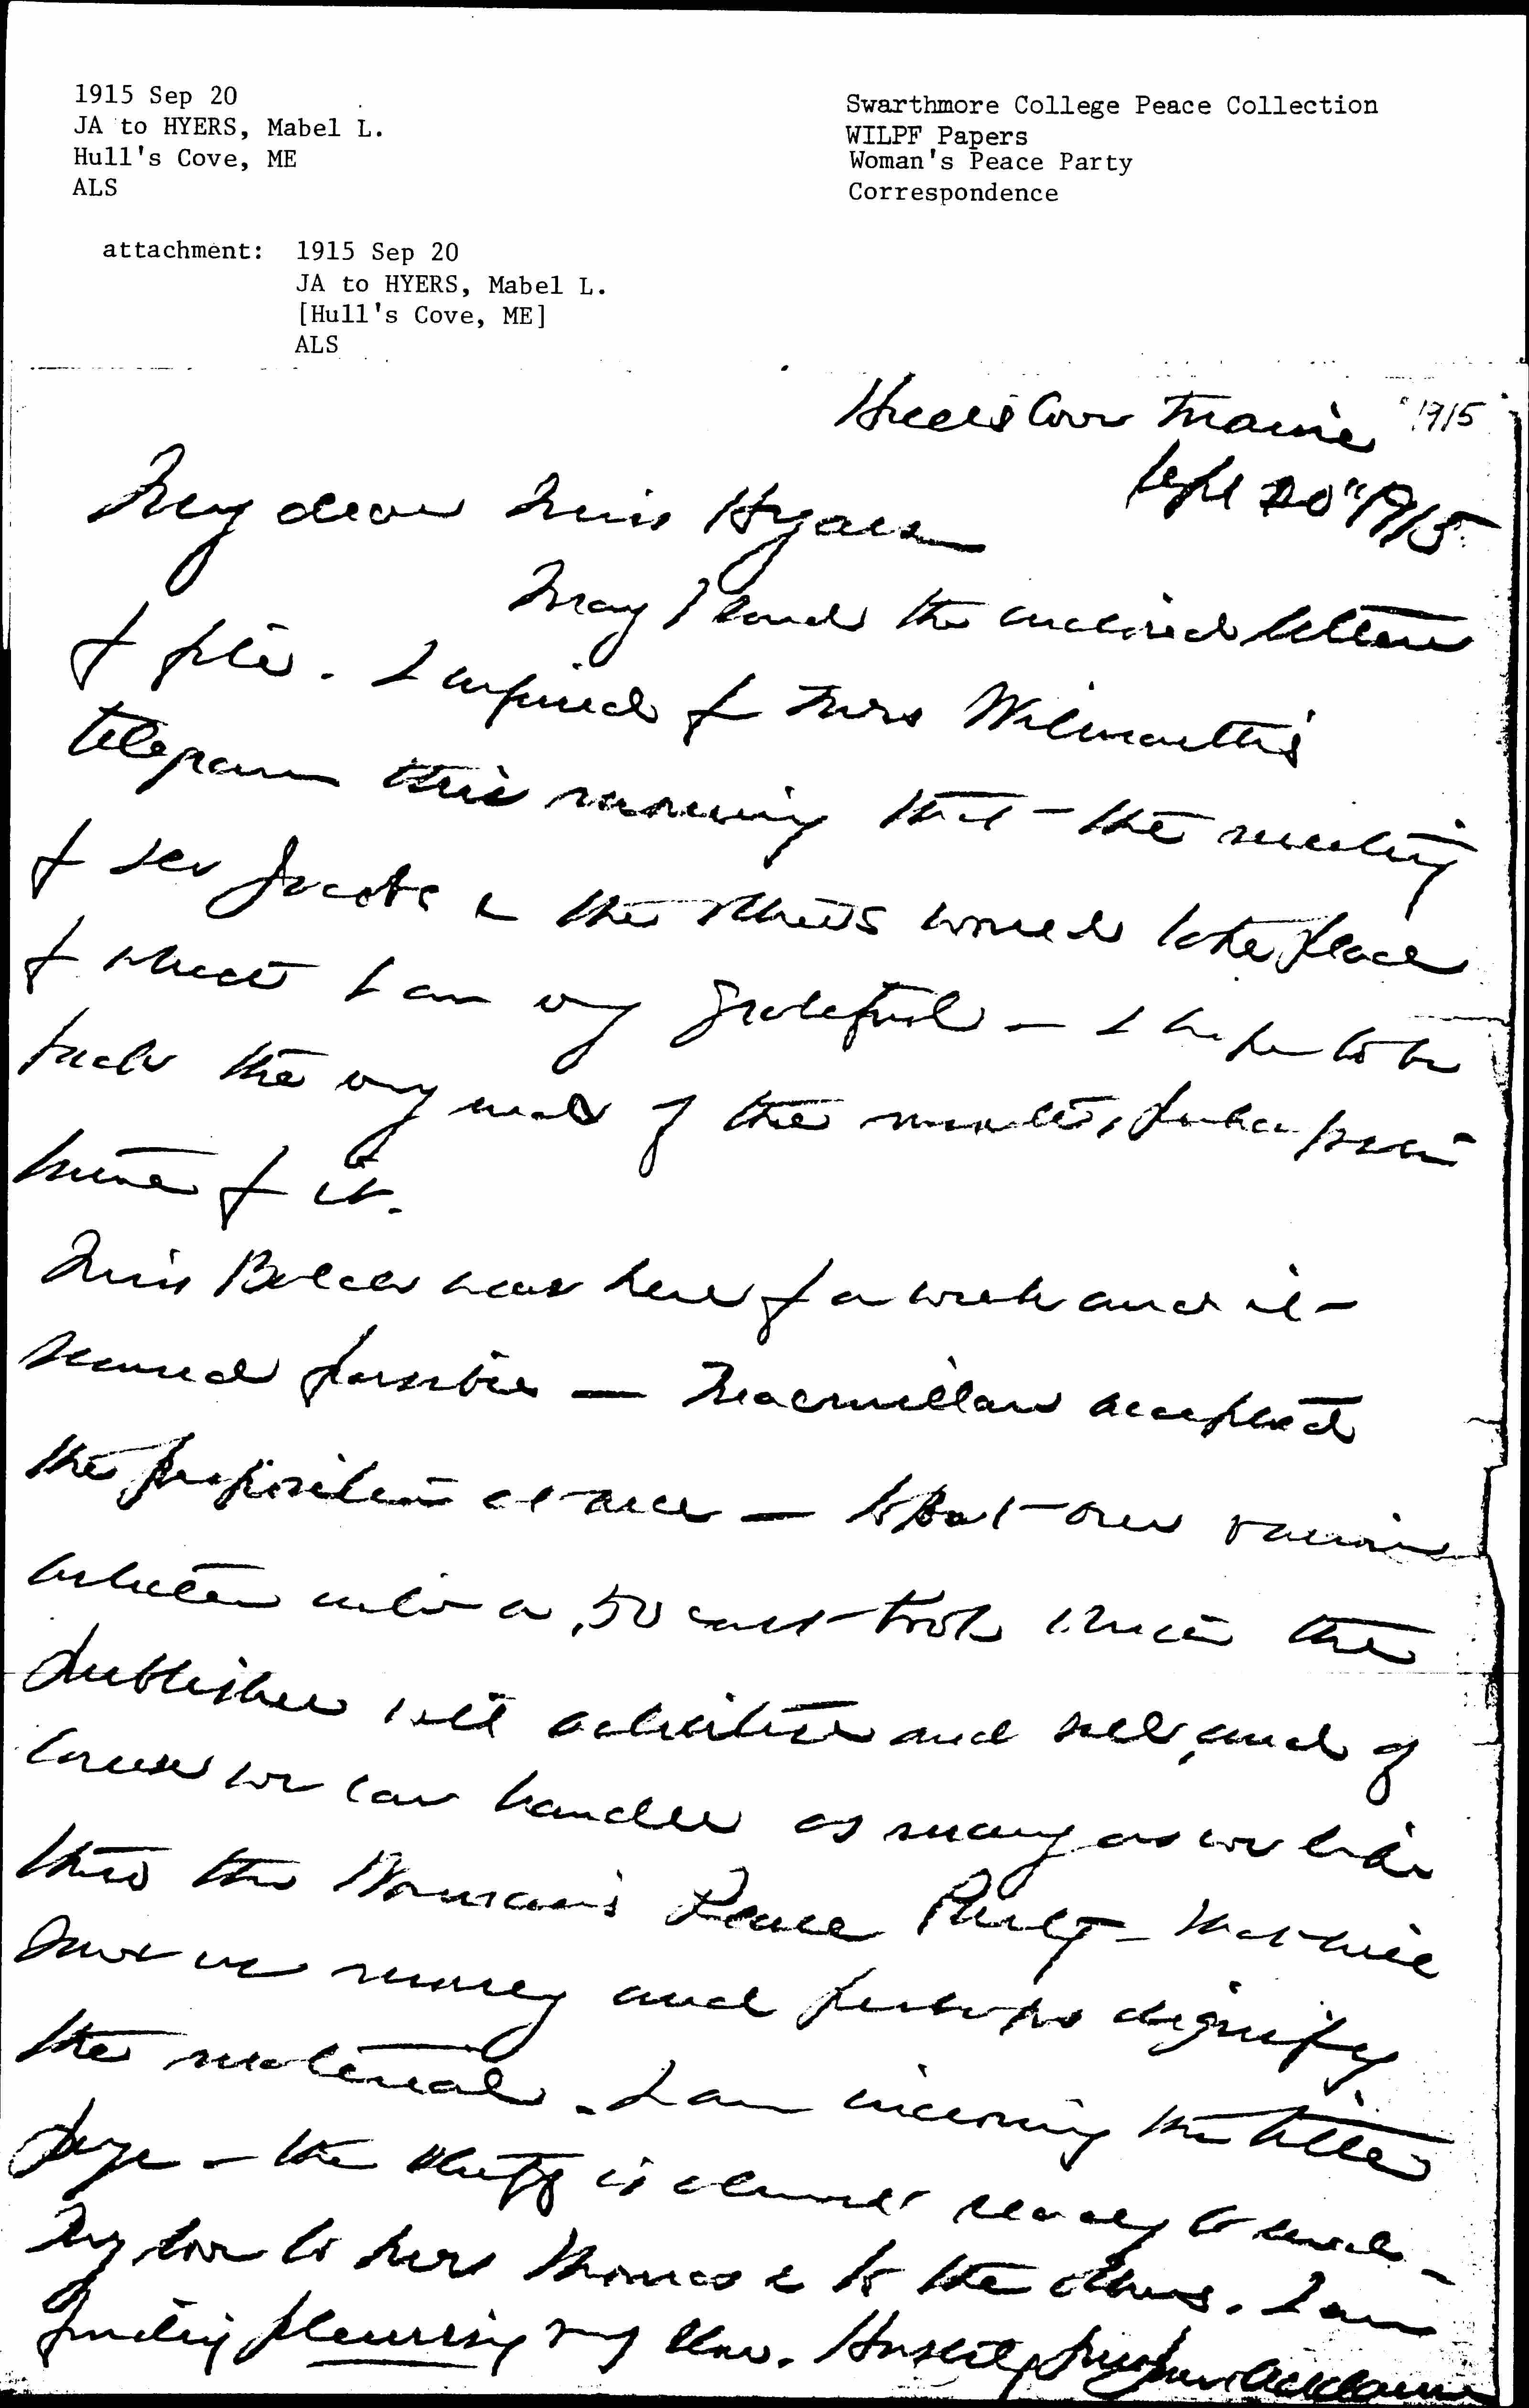 1915 Sep 20
JA to HYERS, Mabel L.
Hull's Cove, ME
ALS
attachment: 1915 Sep 20
JA to HYERS, Mabel L.
[Hull's Cove, ME]
ALS
Swarthmore College Peace Collection
WILPF Papers
Woman's Peace Party
Correspondence
Hull's Cove Maine 1915
Sept 20" 1915
My dear Miss Hyers
May I send the enclosed letters
f file. I inferred f Mrs Wilmarth's
telegram this morning that the meeting
f Jacobs & the others would take place
f which I am very grateful — I hope to be
back the very end of the month, perhaps
f it.
Miss Balch was here f a week and it
seemed possible — Macmillan accepted
the proposition at once — to put our various
articles into a .50 cent book which the
publisher will advertise and sell, and of
course we can handle as many as we like
thro the Woman's Peace Party — that will
save us money and perhaps dignify
the material. I am enclosing the title
page — the stuff is almost ready to send —
My love to Mrs Thomas & to the others. I am
finding pleurisy very slow. Hastily yours Jane Addams